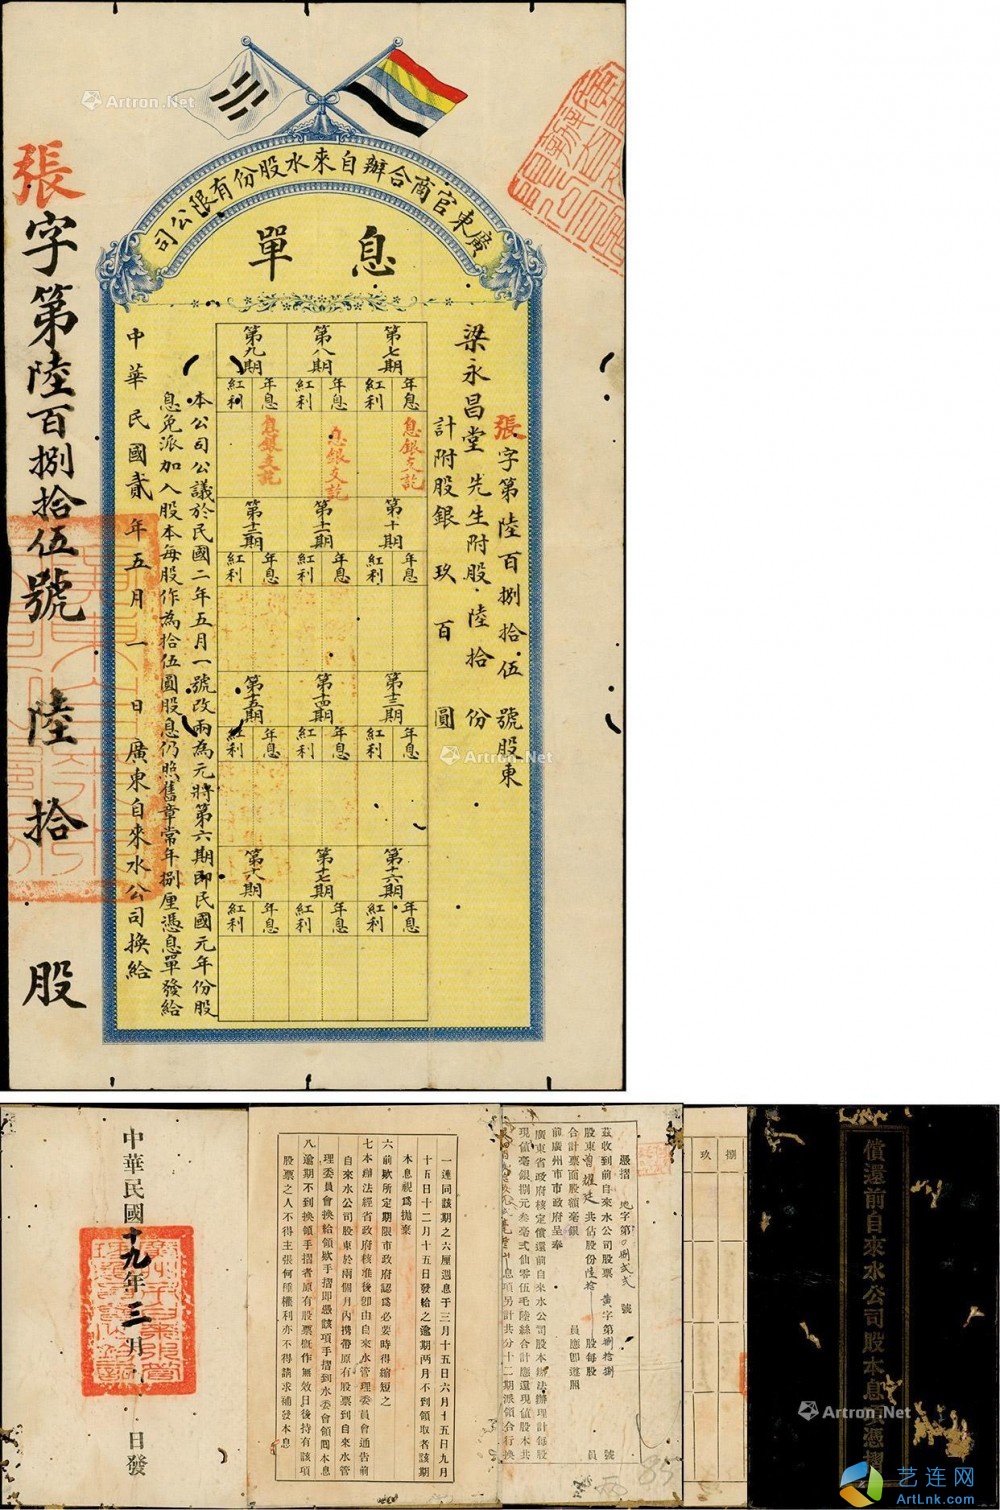 廣東官商合辦自來水股份有限公司
息單
張字第陸百捌拾伍號股東
梁永昌堂先生附股陸拾份
計附股銀玖百圓
第七期
第八期
第九期
年息
紅利
年息
紅利
年息
紅利
息銀支訖
息銀支訖
息銀支訖
第十期
第十一期
第十二期
年息
紅利
年息
紅利
年息
紅利
第十三期
第十四期
第十五期
年息
紅利
年息
紅利
年息
紅利
第十六期
第十七期
第十八期
年息
紅利
年息
紅利
年息
紅利
本公司公議於民國二年五月一號改兩為元將第六期即民國元年份股
息免派加入股本每股作為拾伍圓股息仍照舊章常年捌厘憑息單發給
中華民國貳年五月一日廣東自來水公司換給
張字第陸百捌拾伍號 陸拾股
償還前自來水公司股本息項憑摺
捌
玖
憑摺 地字第0捌貳弍號
茲收到前自來水公司股票 黃字第捌拾捌號
股東曾耀廷共佔股份陸拾股每股員
合計票面股額毫銀 員應卽遵照
前廣州市市政府呈奉
廣東省政府核定償還前自來水公司股本辦法辦理計每股
現值毫銀捌元叁毫弍仙零伍毛陸絲合計應還現值股本共
息項另計共分十二期派領合行換
一連同該期之六厘週息于三月十五日六月十五日九月
十五日十二月十五日發給之逾期兩月不到領取者該期
本息視爲拋棄
六前欵所定期限市政府認爲必要時得縮短之
七本辦法經省政府核准後卽由自來水管理委員會通告前
自來水公司股東於兩個月內携帶原有股票到自來水管
理委員會換給領欵手摺卽憑該項手摺到水委會領囘本息
八逾期不到換領手摺者原有股票概作無效日後持有該項
股票之人不得主張何種權利亦不得請求補發本息
中華民國十九年三月 日發
85
Artron.Net
Artron.Net
Artron.Net
艺连网
ArtLnk.com